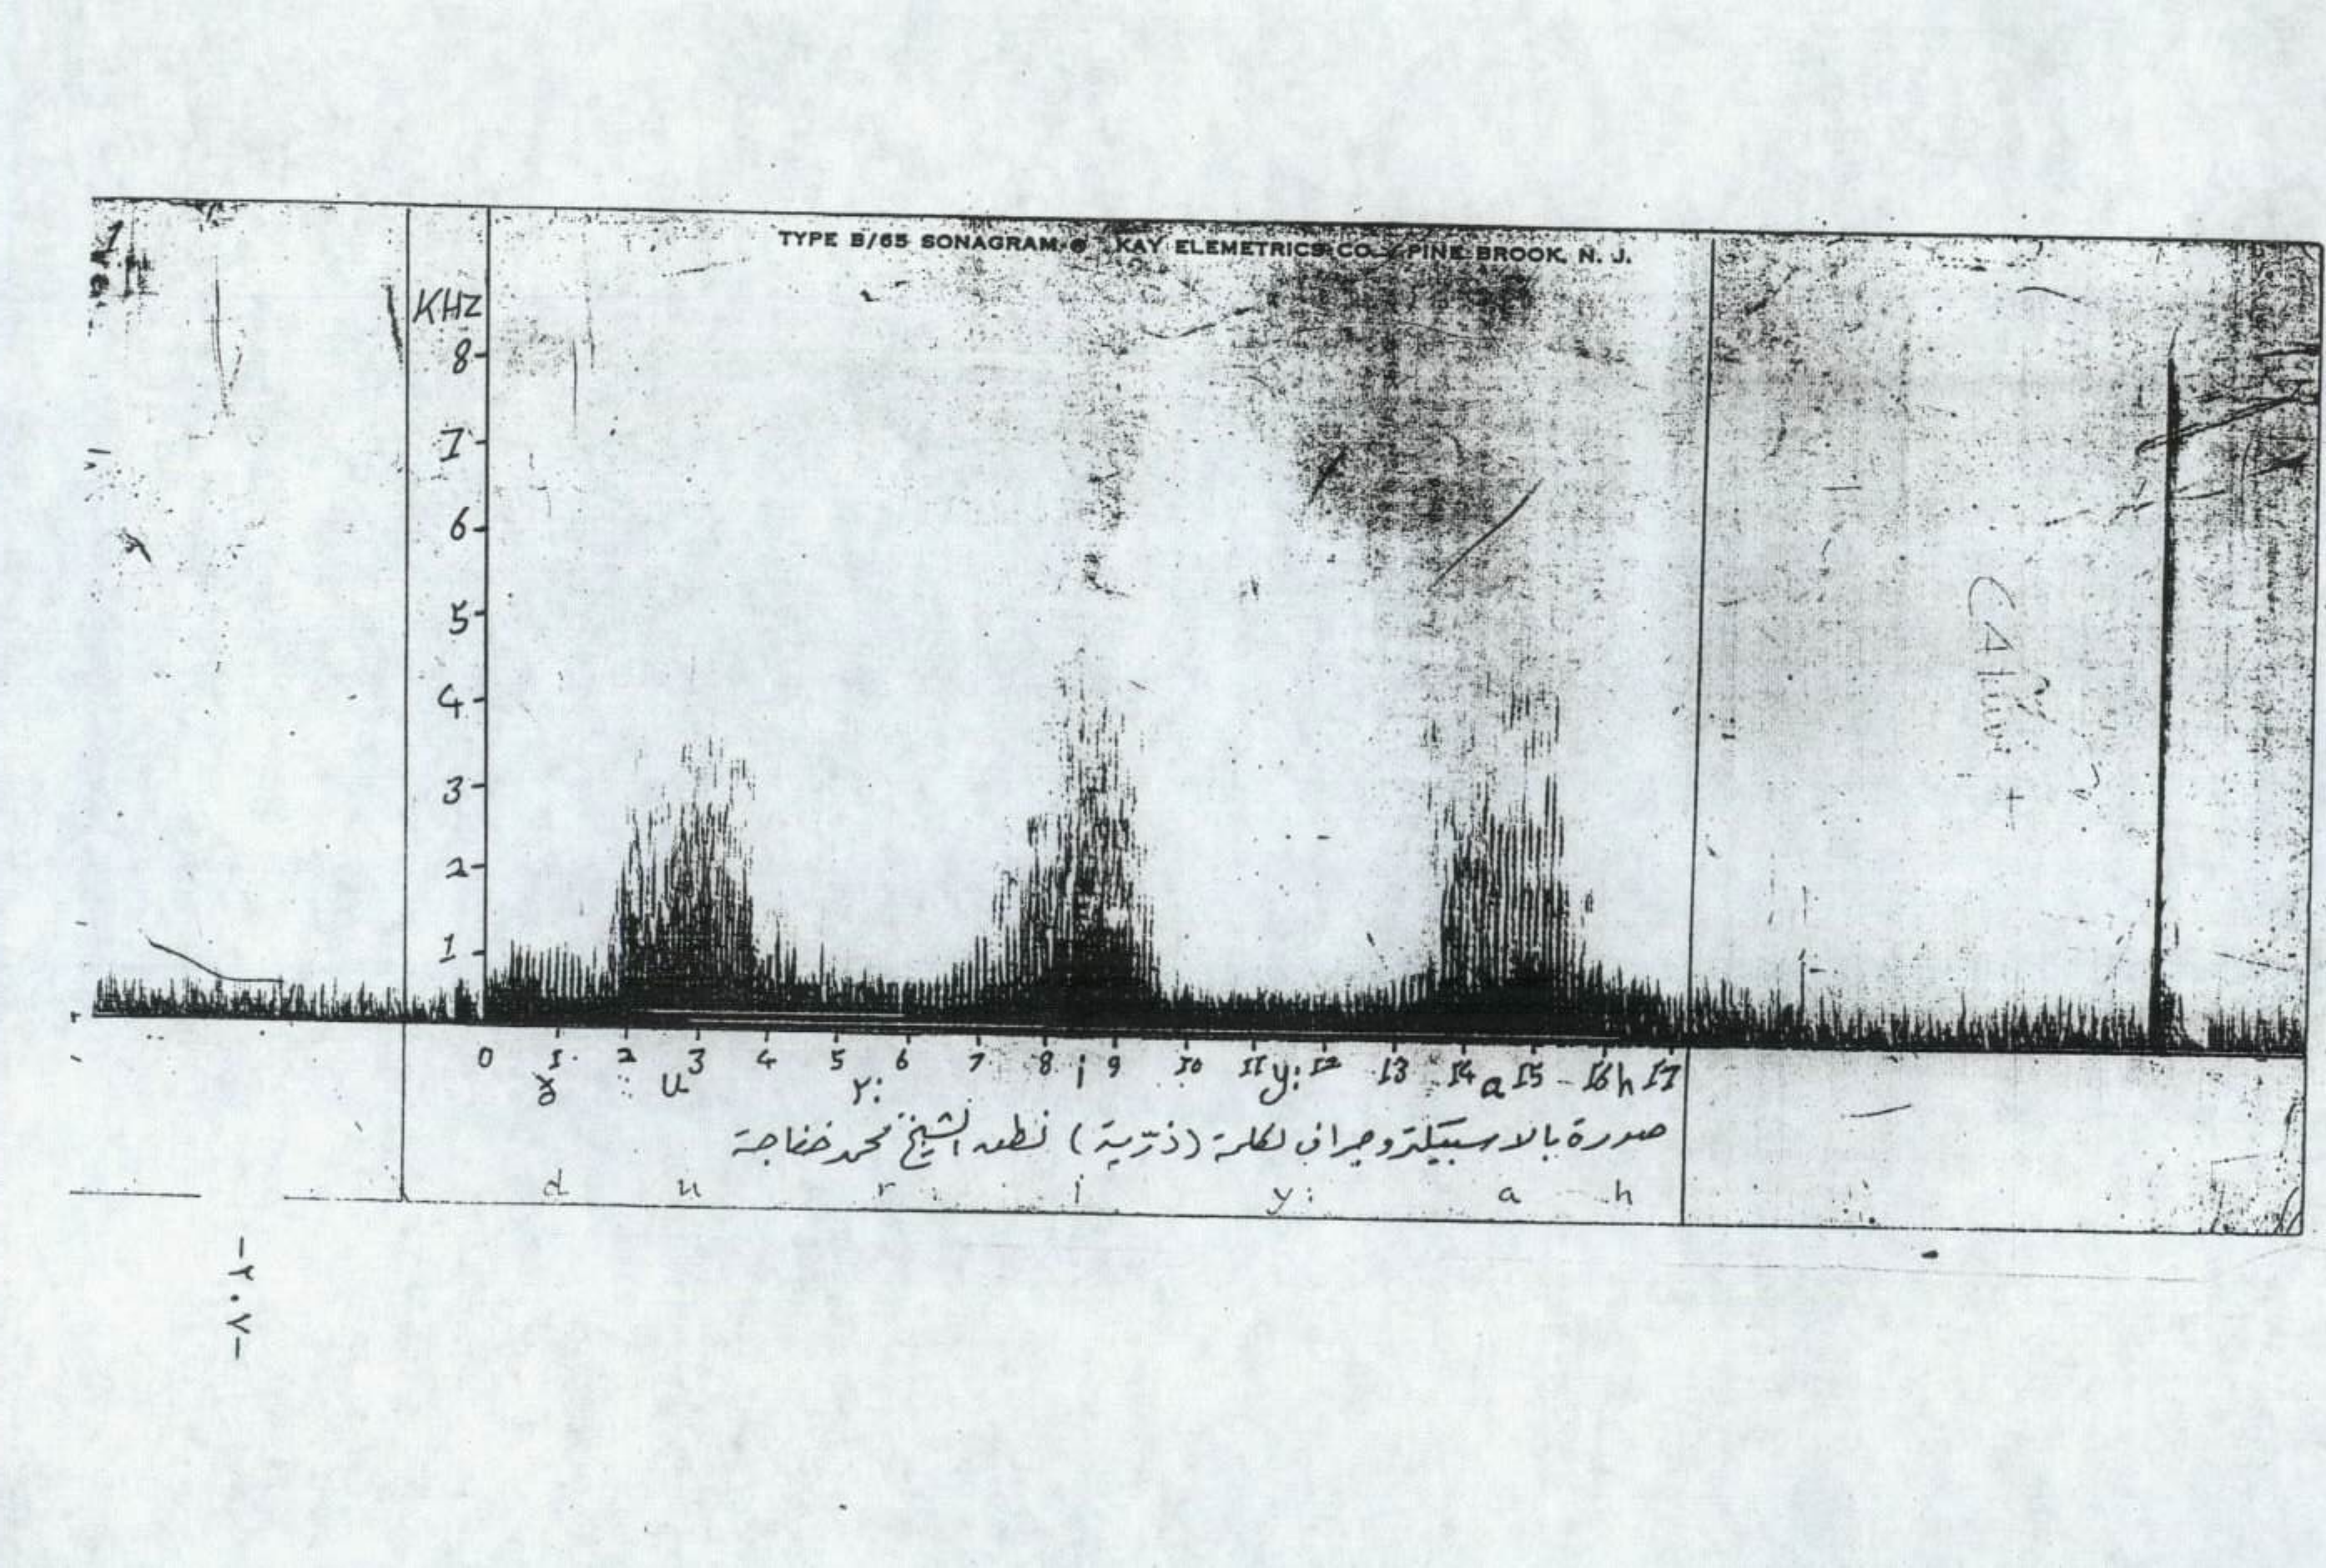 TYPE B/65 SONAGRAM ® KAY ELEMETRICS CO. PINE BROOK, N. J.
KHZ
8
7
6
5
4
3
2
1
0 1 2 3 4 5 6 7 8 9 10 11 12 13 14 15 16 17
ﻵ u r: i y: a h
صورة بالاسبيكتروجراف لكلمة (ذرّية) نطق الشيخ محمد خفاجة
d u r : i y: a h
-٢٠٧-